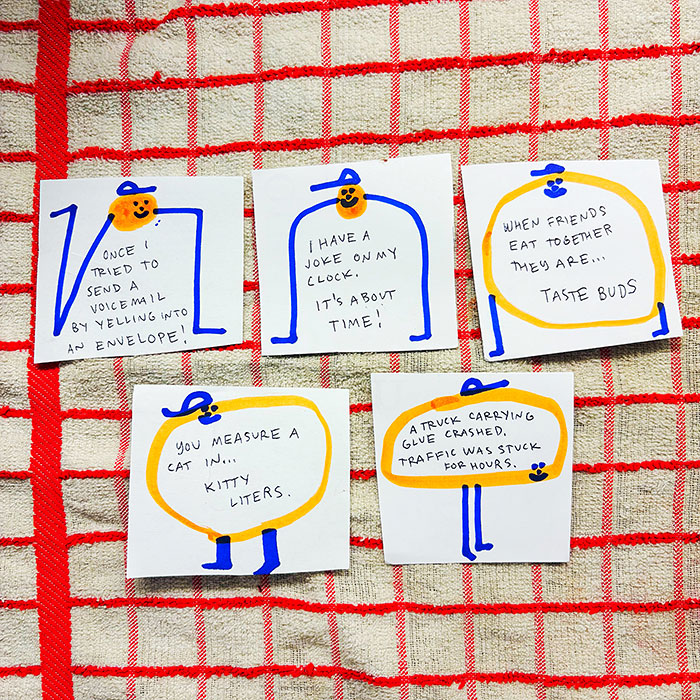 ONCE I
TRIED TO
SEND A
VOICEMAIL
BY YELLING INTO
AN ENVELOPE!
I HAVE A
JOKE ON MY
CLOCK.
IT'S ABOUT
TIME!
WHEN FRIENDS
EAT TOGETHER
THEY ARE...
TASTE BUDS
YOU MEASURE A
CAT IN...
KITTY
LITERS.
A TRUCK CARRYING
GLUE CRASHED.
TRAFFIC WAS STUCK
FOR HOURS.